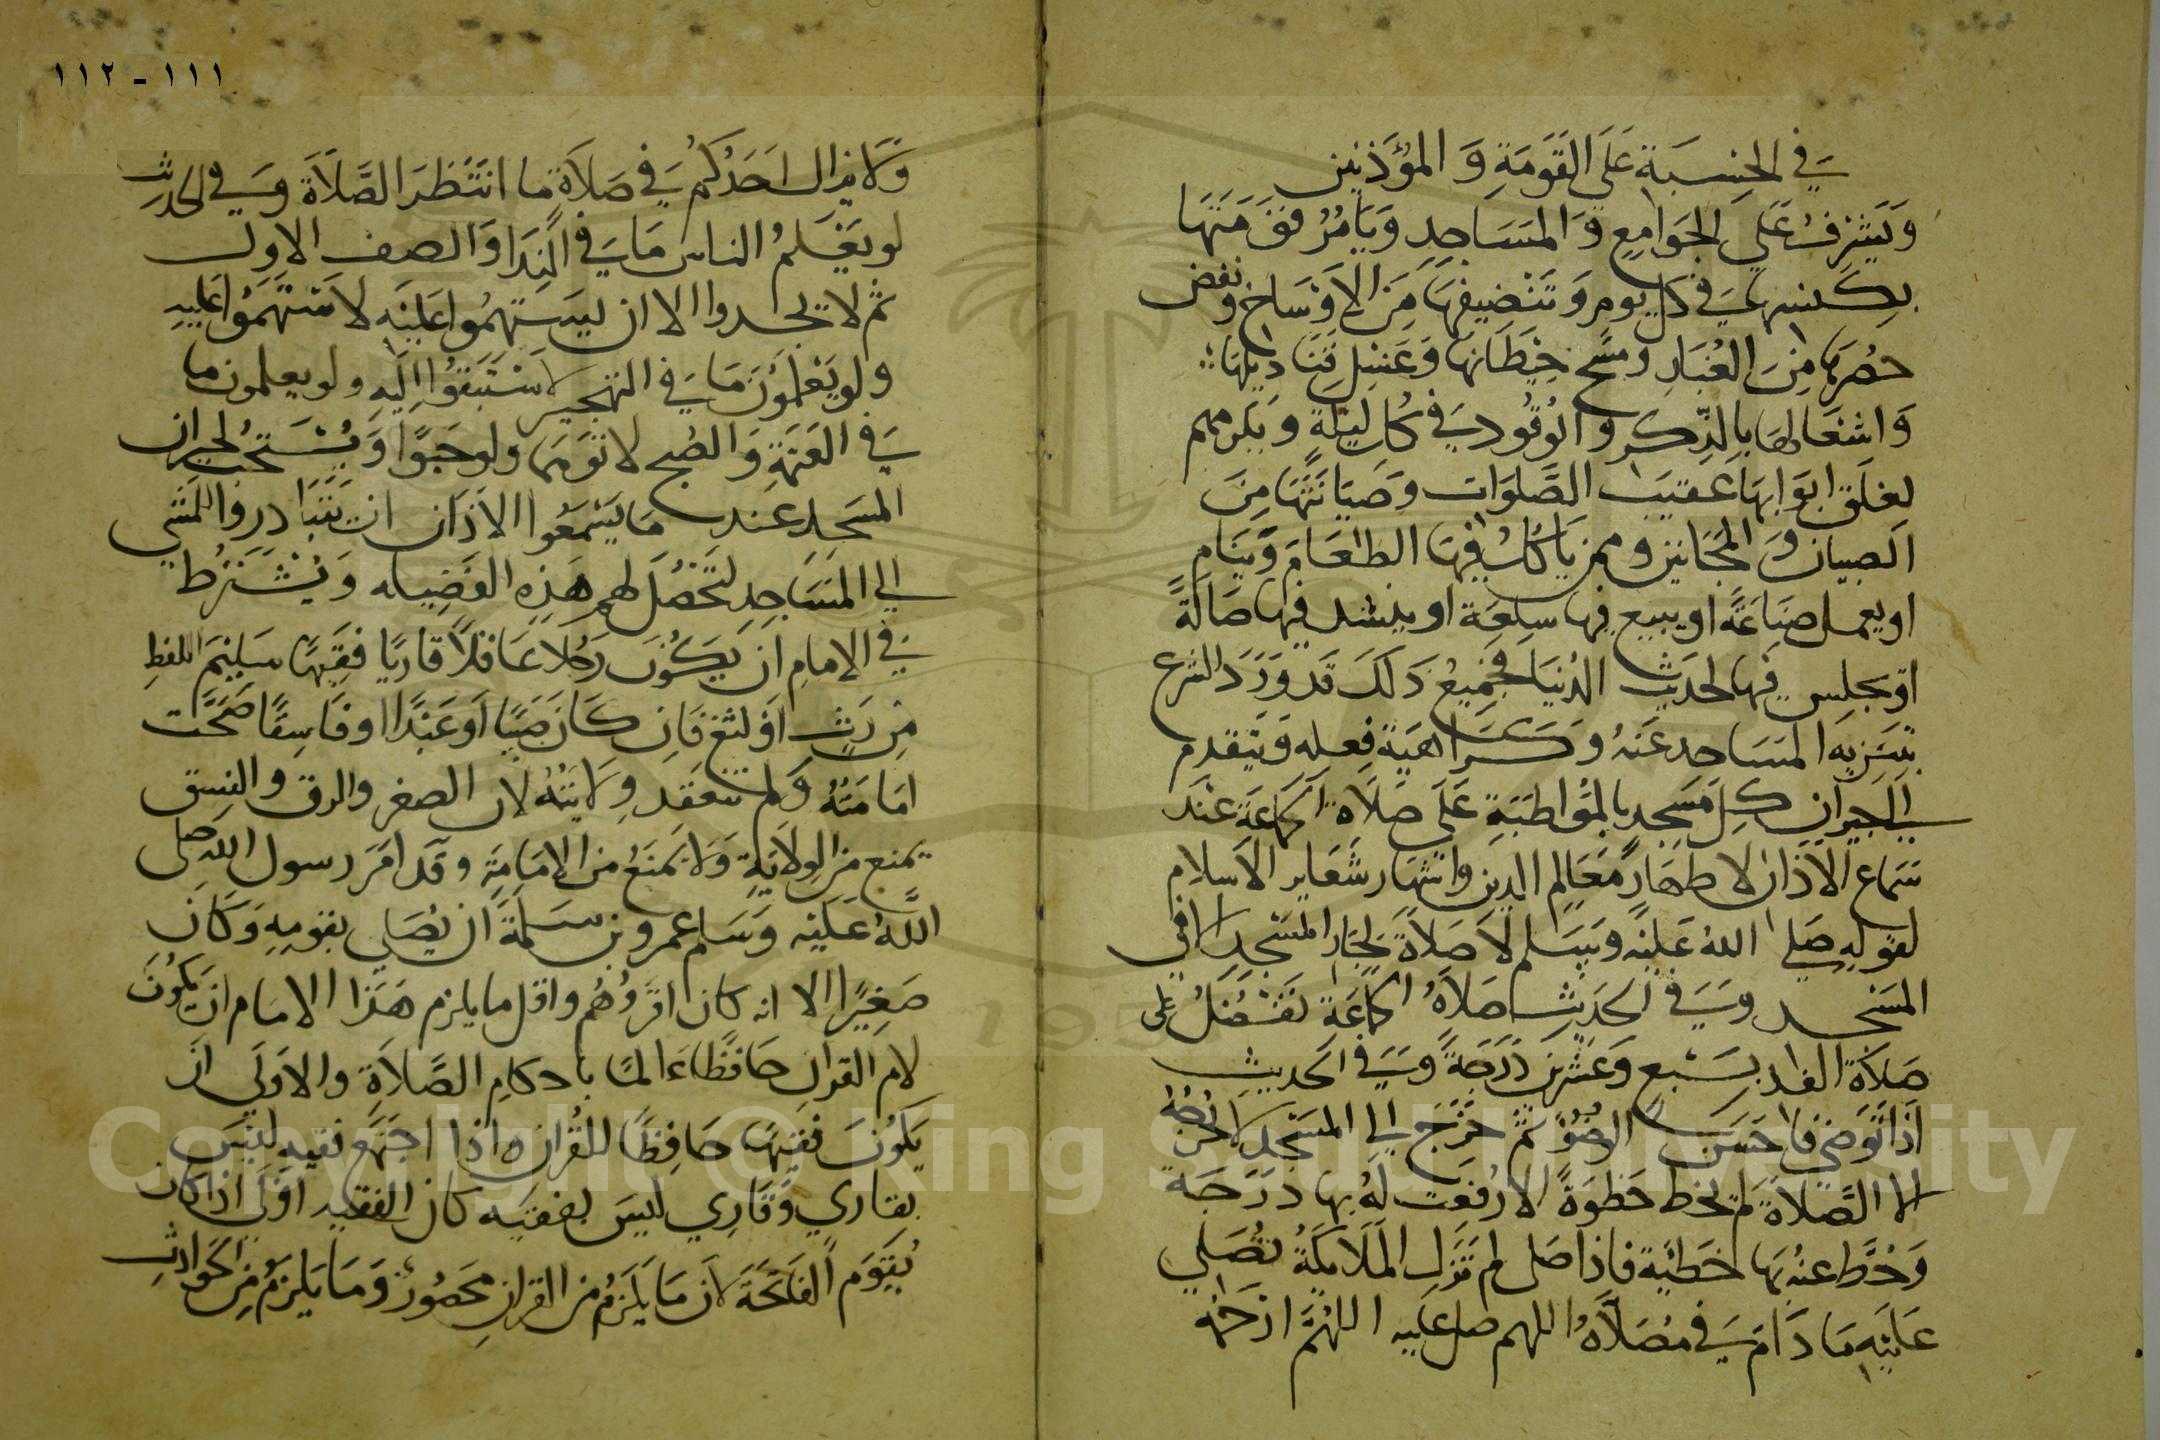 ١١١ - ١١٢
في الحسبة على القومة و المؤذنين
ويشرف على الجوامع و المساجد ويامر قومتها
بكنسها في كل يوم وتنضيفها من الاوساخ ونفض
حصرها من الغبار ومسح حيطانها وغسل قناديلها
واشعالها بالذكر و الوقود في كل ليلة و
لغلق ابوابها عقيب الصلوات وصيانتها من
الصبيان و المجانين وممن ياكل فيها الطعام وينام
او يعمل صناعة او يبيع فيها سلعة او ينشد فيها ضالة
او يجلس فيها لحديث الدنيا فجميع ذلك قد ورد الشرع
بتنزيه المساجد عنه وكراهية فعله ويتقدم
الى جيران كل مسجد بالمواظبة على صلاة الجماعة عند
سماع الاذان لاظهار معالم الدين واشهار شعاير الاسلام
لقوله صلى الله عليه وسلم لا صلاة لجار المسجد الا في
المسجد وفي الحديث صلاة الجماعة تفضل على
صلاة الفذ بسبع وعشرين درجة وفي الحديث
اذا توضى فاحسن الوضؤ ثم خرج الى المسجد لا تخرجه
الا الصلاة لم يخط خطوة الا رفعت له بها درجة
وحط عنه بها خطية فاذا صلى لم تزل الملايكة تصلي
عليه ما دام في مصلاه اللهم صل عليه اللهم ارحمه
ولا يزال احدكم في صلاة ما انتظر الصلاة وفي الحديث
لو يعلم الناس ما في الندا و الصف الاول
ثم لا يجدوا الا ان يستهموا عليه لاستهموا عليه
ولو يعلمون ما في التهجير لاستبقوا اليه ولو يعلمون ما
في العتمة و الصبح لاتوهما ولو حبوا ويستحب لجيران
المسجد عند ما يسمعوا الاذان ان يتبادروا المشي
الى المساجد لتحصل لهم هذه الفضيله ويشترط
في الامام ان يكون رجلا عاقلا قاريا فقيها سليم اللفظ
من رث او لثغ فان كان صبيا او عبدا او فاسقا صحت
امامته ولم تنعقد ولايته لان الصغر والرق والفسق
يمنع من الولاية ولا يمنع من الامامة وقد امر رسول الله صلى
الله عليه وسلم عمرو بن سلمة ان يصلي بقومه وكان
صغيرا الا انه كان اقروهم واقل ما يلزم هذا الامام ان يكون
لام القران حافظا عالما باحكام الصلاة والاولى ان
يكون فقيها حافظا للقران واذا اجتمع فقيه ليس
بقاري وقاري ليس بفقيه كان الفقيه اولى اذا كان
يقيم الفاتحة لان ما يلزم من القران محصور وما يلزم من الحوادث
Copyright © King Saud University
195